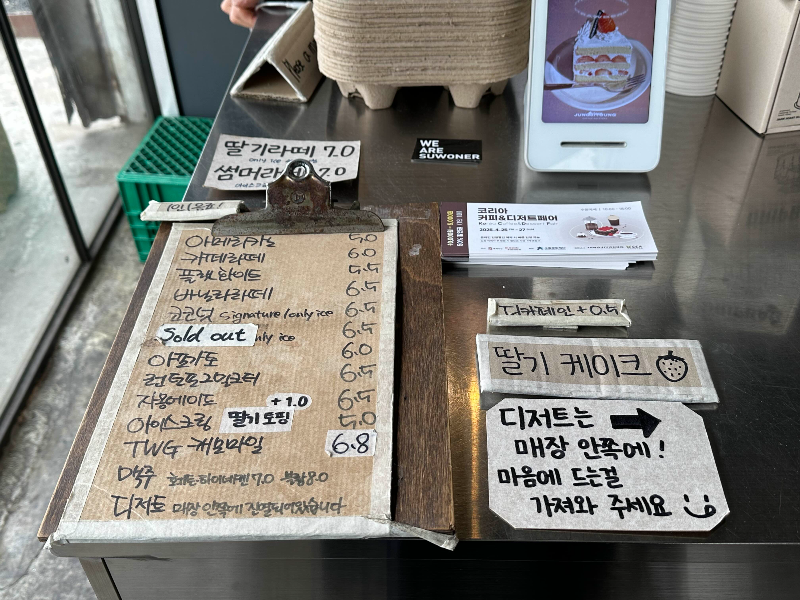 딸기라떼 7.0
only ice
썸머라떼 7.0
1인 1음료!
아메리카노 5.0
카페라떼 6.0
플랫화이트 5.5
바닐라라떼 6.5
코코넛 signature/only ice 6.5
Sold out only ice 6.5
아포가토 6.0
런던포그밀크티 6.5
자몽에이드 6.5
아이스크림 딸기토핑 +1.0 5.0
TWG 캐모마일 6.8
맥주 7.0 8.0
디저트 매장 안쪽에 진열되어있습니다
WE
ARE
SUWONER
JUNIANYOUNG
코리아
커피&디저트페어
Korea Coffee&Dessert Fair
2025.4.25 - 27
디카페인 +0.5
딸기 케이크
디저트는
매장 안쪽에!
마음에 드는걸
가져와 주세요